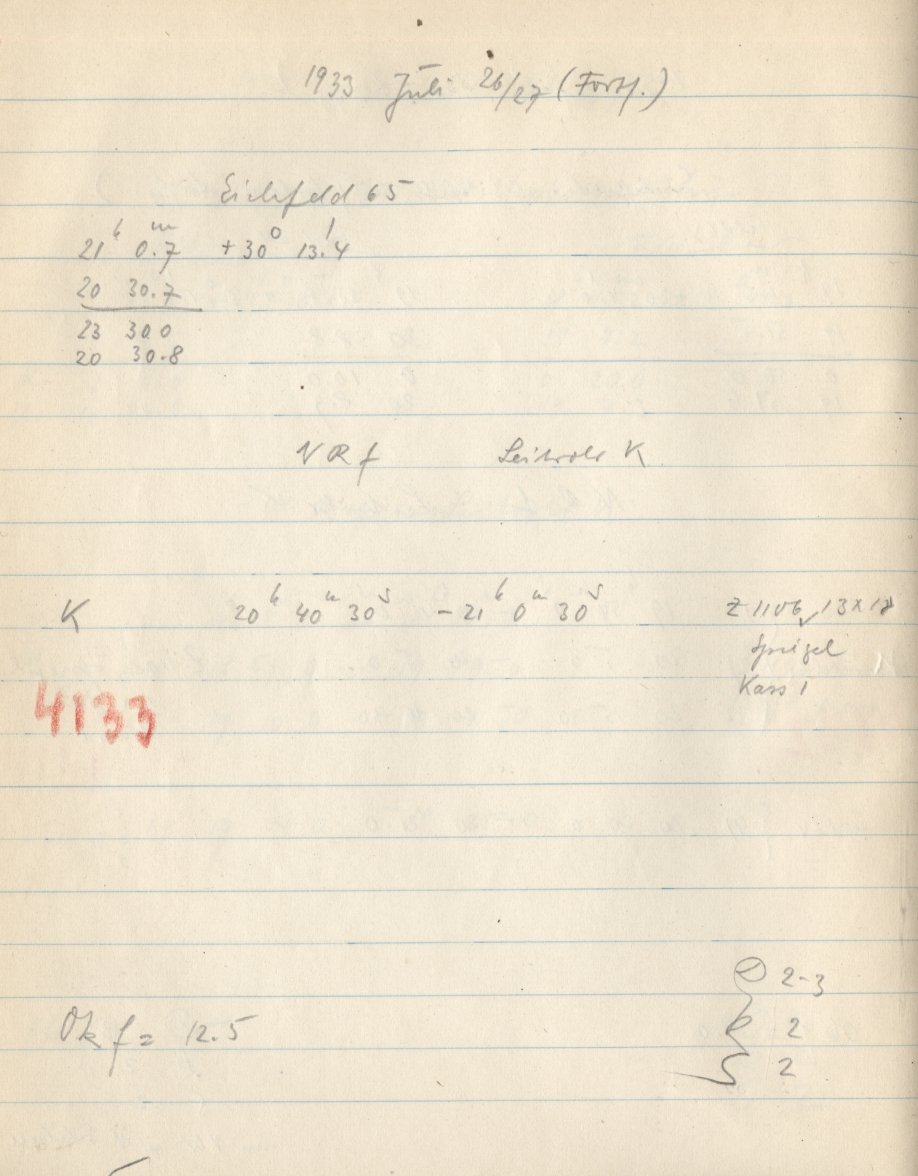 1933 Juli 26/27 (Forts.)
Eichfeld 65
21h 0m.7 +30° 13'.4
20 30.7
23 30.0
20 30.8
NRf Leitrohr K
K 20h 40m 30s - 21h 0m 30s Z 1106, 13x18
Spiegel
Kass 1
4133
2-3
Ok f = 12.5 2
2